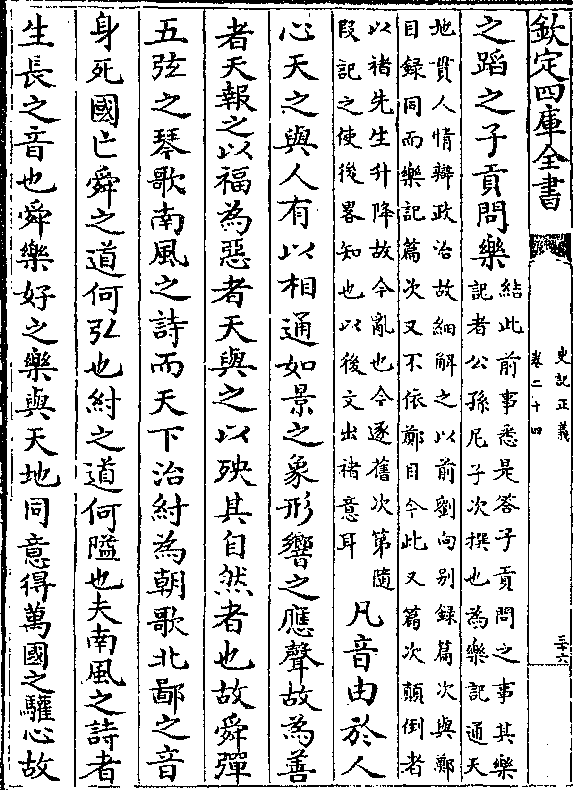 欽定四庫全書
史記正義
卷二十四
三十六
之蹈之子貢問樂
結此前事悉是答子貢問之事其樂
記者公孫尼子次撰也為樂記通天
地貫人情辯政治故細解之以前劉向别録篇次與鄭
目録同而樂記篇次又不依鄭目今此又篇次顛倒者
以褚先生升降故今亂也今逐舊次第隨
段記之使後畧知也以後文出褚意耳
凡音由於人
心天之與人有以相通如景之象形響之應聲故為善
者天報之以福為惡者天與之以殃其自然者也故舜彈
五弦之琴歌南風之詩而天下治紂為朝歌北鄙之音
身死國亡舜之道何弘也紂之道何隘也夫南風之詩者
生長之音也舜樂好之樂與天地同意得萬國之驩心故